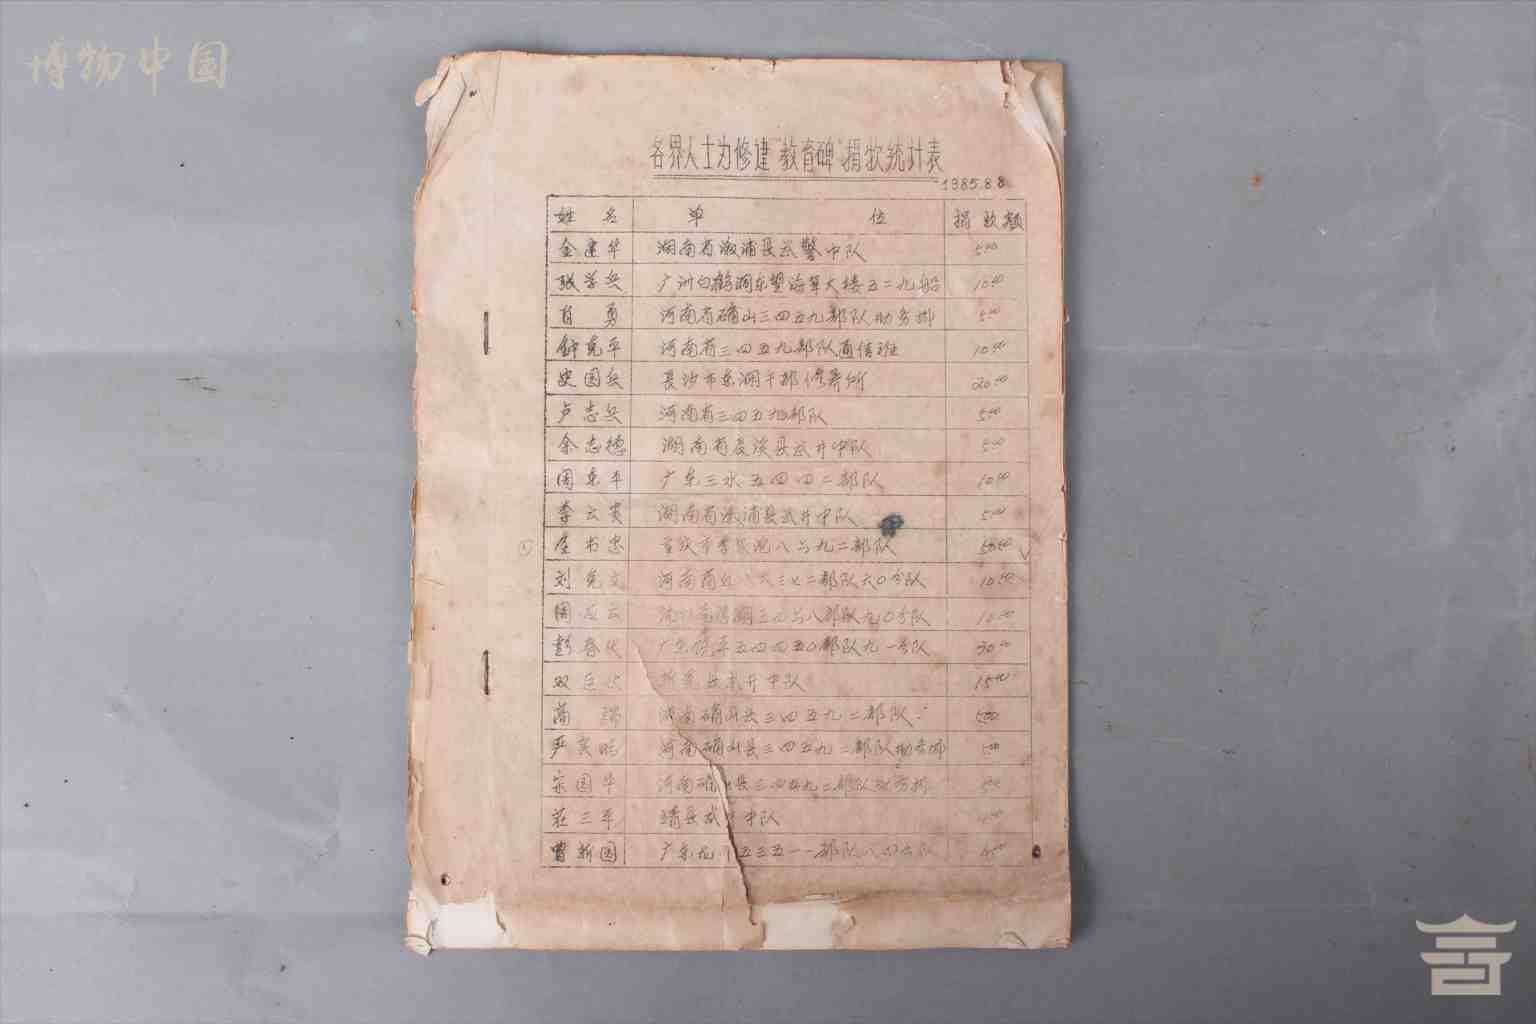 博物中国
各界人士为修建“教育碑”捐款统计表
1985.8.8
姓名 单位 捐款额
金建华 湖南省溆浦县武警中队 5.00
张学兵 广州白鹤洞东望海军大楼五二九船 10.00
肖勇 河南省确山三四五九部队勤务排 5.00
钟克平 河南省三四五九部队通信班 10.00
史国兵 长沙市东湖干部休养所 20.00
卢志兵 河南省三四五九部队 5.00
余志德 湖南省辰溪县武警中队 5.00
周东平 广东三水五四四二部队 10.00
李云贵 湖南省溆浦县武警中队 5.00
書忠 重庆市 八六九二部队 50.00
刘克文 河南商丘 六三七二部队六〇分队 10.00
周 云 三四六八部队九〇分队 10.00
彭春伏 广东 五四四五〇部队九一分队 30.00
双 武警中队 15.00
高瑞 河南确山县三四五九二部队 5.00
严 河南确山县三四五九二部队勤务排 5.00
宗国华 河南确山县三四五九二部队勤务排 5.00
莊三平 靖县武警中队
曾新国 广东 五三五一一部队八四六队